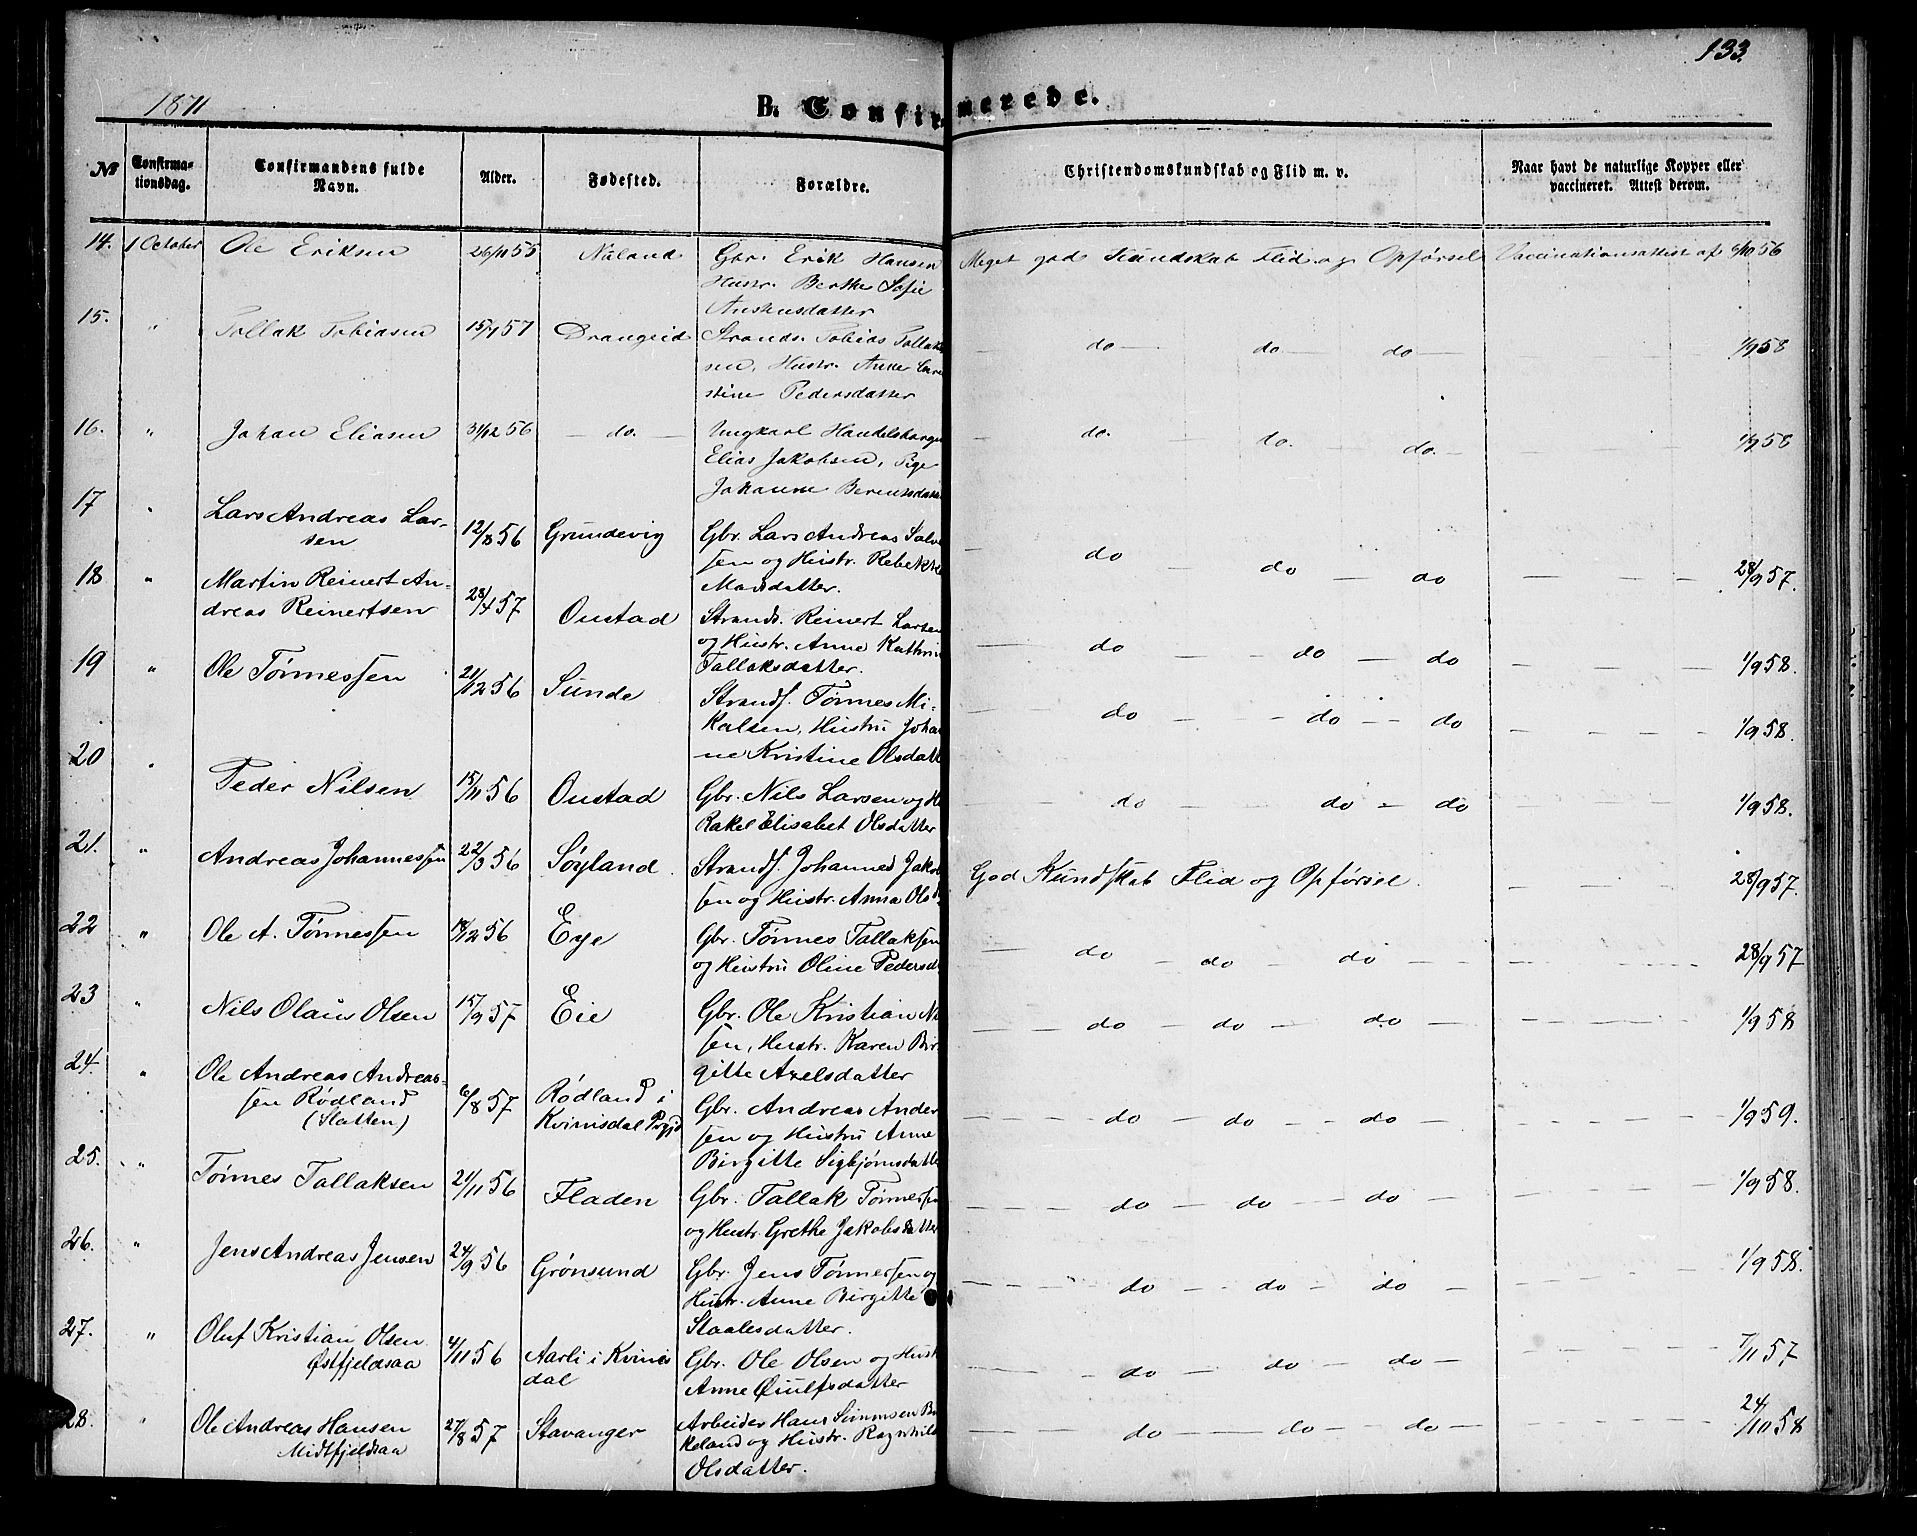 133.
1871
B. Confirmerede.
No
Confirma-
tionsdag.
Confirmandens fulde
Navn.
Alder.
Fødested.
Forældre.
Christendomskundskab og Flid m. v.
Naar havt de naturlige Kopper eller
vaccineret. Attest derom.
14. 1 October Ole Eriksen 26/11 55 Naland Gbr. Erik Hansen Meget god Kundskab Flid og Opførsel Vaccinationsattest af 6/10 56
Hustr. Berthe Sofie
Anshusdatter
15. " Tallak Tobiasen 15/1 57 Drangeid Strands. Tobias Tallak- — do — do — do — 1/9 58
sen, Hustr. Anne
stine Pedersdatter
16. " Johan Eliasen 31/12 56 — do. — Ungkarl Handelsborger — do. — do. — do. — 1/9 58
Elias Jakobsen, Pige
Johanne Berentsdatter
17 " Lars Andreas Lar-
sen 12/8 56 Grundevig Gbr. Lars Andreas Salve — do — do — do — 28/9 57.
sen og Hustr. Rebekke
Monsdatter.
18 " Martin Reinert An-
dreas Reinertsen 28/4 57 Oustad Strands. Reinert Larsen — do — do — do — 1/9 58.
og Hustr. Anne Kathrine
Tallaksdatter.
19 " Ole Tønnessen 21/12 56 Sunde Strands. Tønnes Mi- — do — do — do — 1/9 58.
kalsen, Hustru Johan
ne Kristine Olsdatt
20 " Peder Nilsen 15/11 56 Oustad Gbr. Nils Larsen og H — do — do — do — 1/9 58.
Rakel Elisabet Olsdatter
21. " Andreas Johannessen 22/3 56 Søyland. Strands. Johannes Jakob God Kundskab Flid og Opførsel. — 28/9 57.
sen og Hustr. Anna Ols
22 " Ole A. Tønnessen 18/12 56 Eye Gbr. Tønnes Tallaksen — do — do — do — 28/9 57
og Hustru Oline Pedersd
23 " Nils Olaus Olsen 15/9 57 Eie Gbr. Ole Kristian Nil — do — do — do — 1/9 58
sen, Hustr. Karen Bir-
gitte Axelsdatter
24. " Ole Andreas Andreas-
sen Rødland
(Slatten) 6/8 57 Rødland i
Kvinisdal Prgjd Gbr. Andreas Ander — do — do — do — 1/9 59.
sen og Hustru Anne
Birgitte Sigbjørnsdatte
25. " Tønnes Tallaksen 21/11 56 Fladen Gbr. Tallak Tønnessen — do — do — do — 1/9 58.
og Hustr. Grethe Jakobsdatter
26. " Jens Andreas Jensen 24/9 56 Grønsund Gbr. Jens Tønnessen og — do — do — do — 1/9 58.
Hustr. Anne Birgitte
Staalesdatter.
27. " Oluf Kristian Olsen
Østfjeldsaa 4/11 56 Aarli i Kvinis
dal Gbr. Ole Olsen og Hustr — do — do — do — 7/11 57
Anne Øiulfsdatter
28. " Ole Andreas Hansen
Midtfjeldsaa 27/8 57 Stavanger Arbeider Hans Simonsen — do — do — do — 24/10 58
keland og Hustr. Ragnhild
Olsdatter.